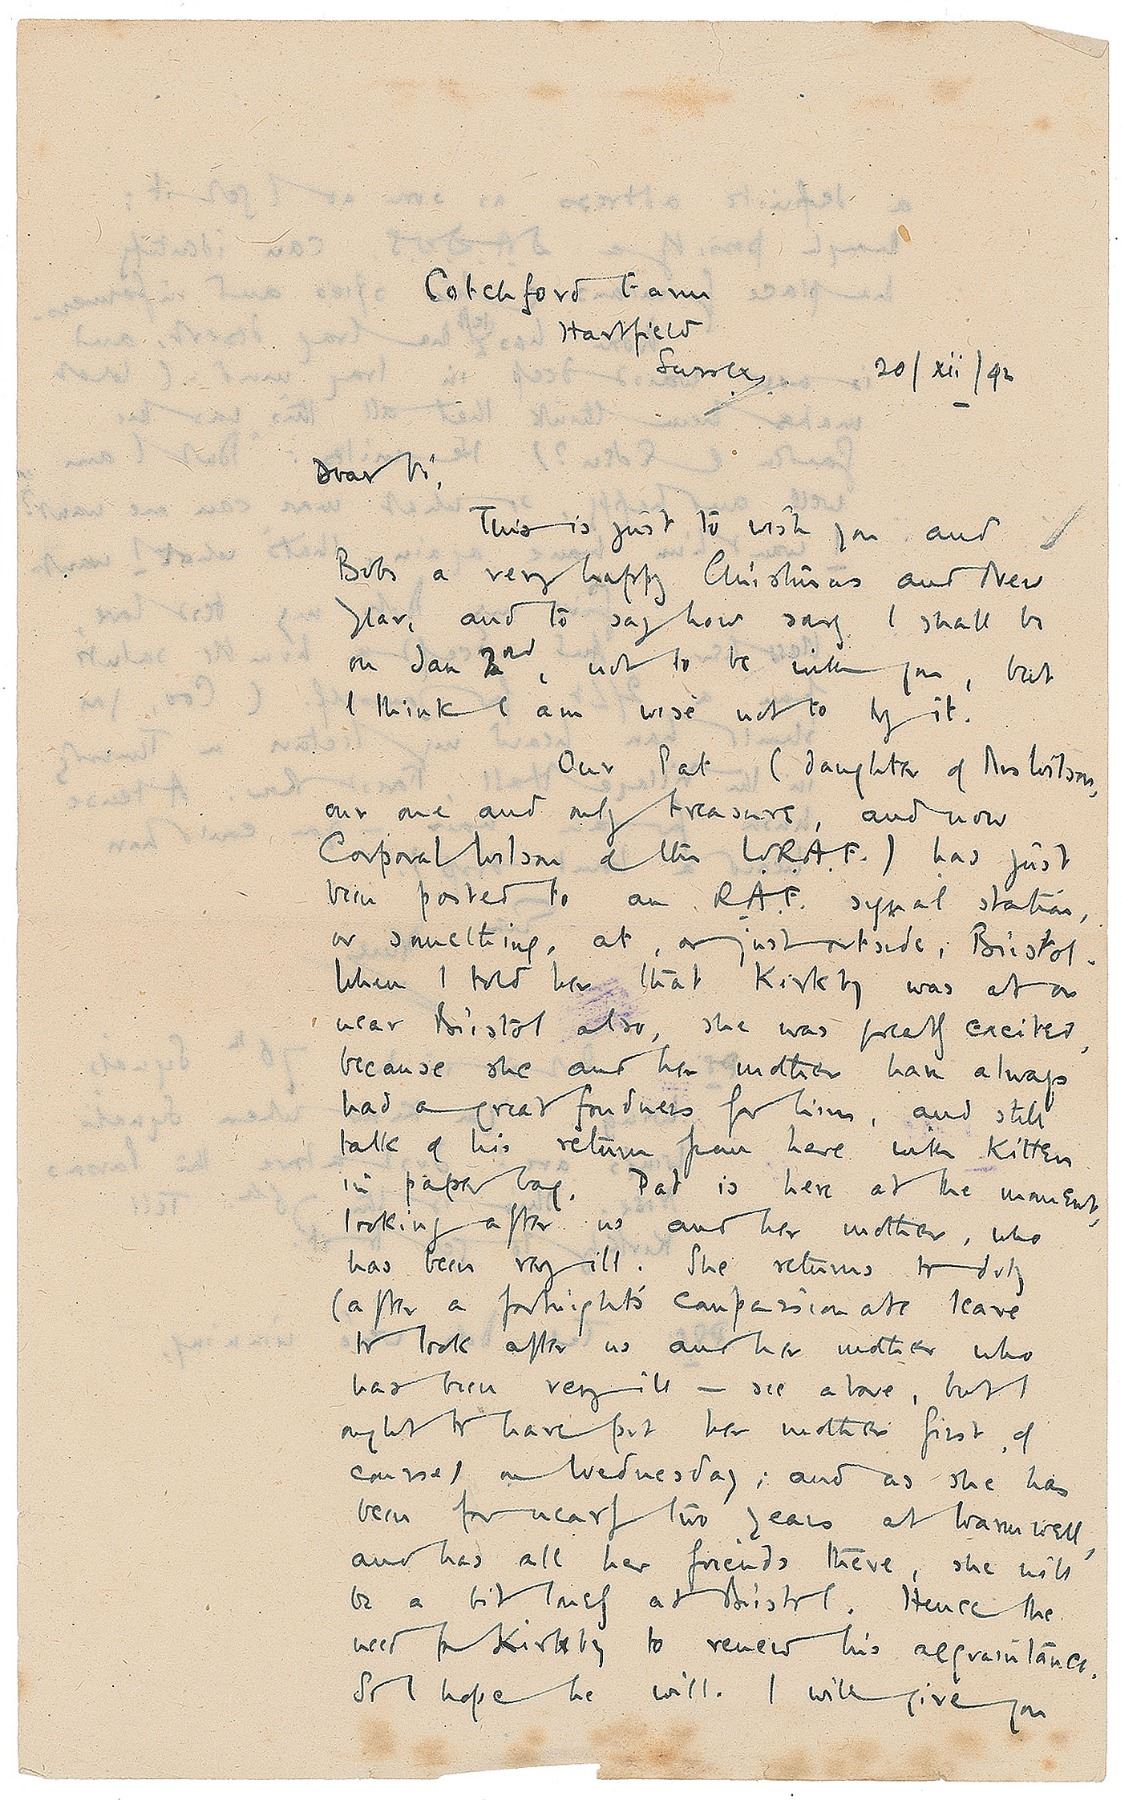 Cotchford Farm
Hartfield
Sussex.
20/xii/42
Dear Vi,
This is just to wish you and
Bobs a very happy Christmas and New
Year, and to say how sorry I shall be
on Jan 2nd, not to be with you, but
I think I am wise not to try it.
Our Pat (daughter of Mrs Wilson,
our one and only treasure, and now
Corporal Wilson of the W.R.A.F.) has just
been posted to an R.A.F. signal station,
or something, at, or just outside, Bristol.
When I told her that Kirkby was at or
near Bristol also, she was greatly excited,
because she and her mother have always
had a great fondness for him, and still
talk of his return from here with Kitten
in paper bag. Pat is here at the moment,
looking after us and her mother, who
has been very ill. She returns to duty
(after a fortnight's compassionate leave
to look after us and her mother who
has been very ill — see above, but I
ought to have put her mother first, of
course) on Wednesday; and as she has
been for nearly two years at Warmwell,
and has all her friends there, she will
be a bit lonely at Bristol. Hence the
need for Kirkby to renew his acquaintance.
So I hope he will. I will give you